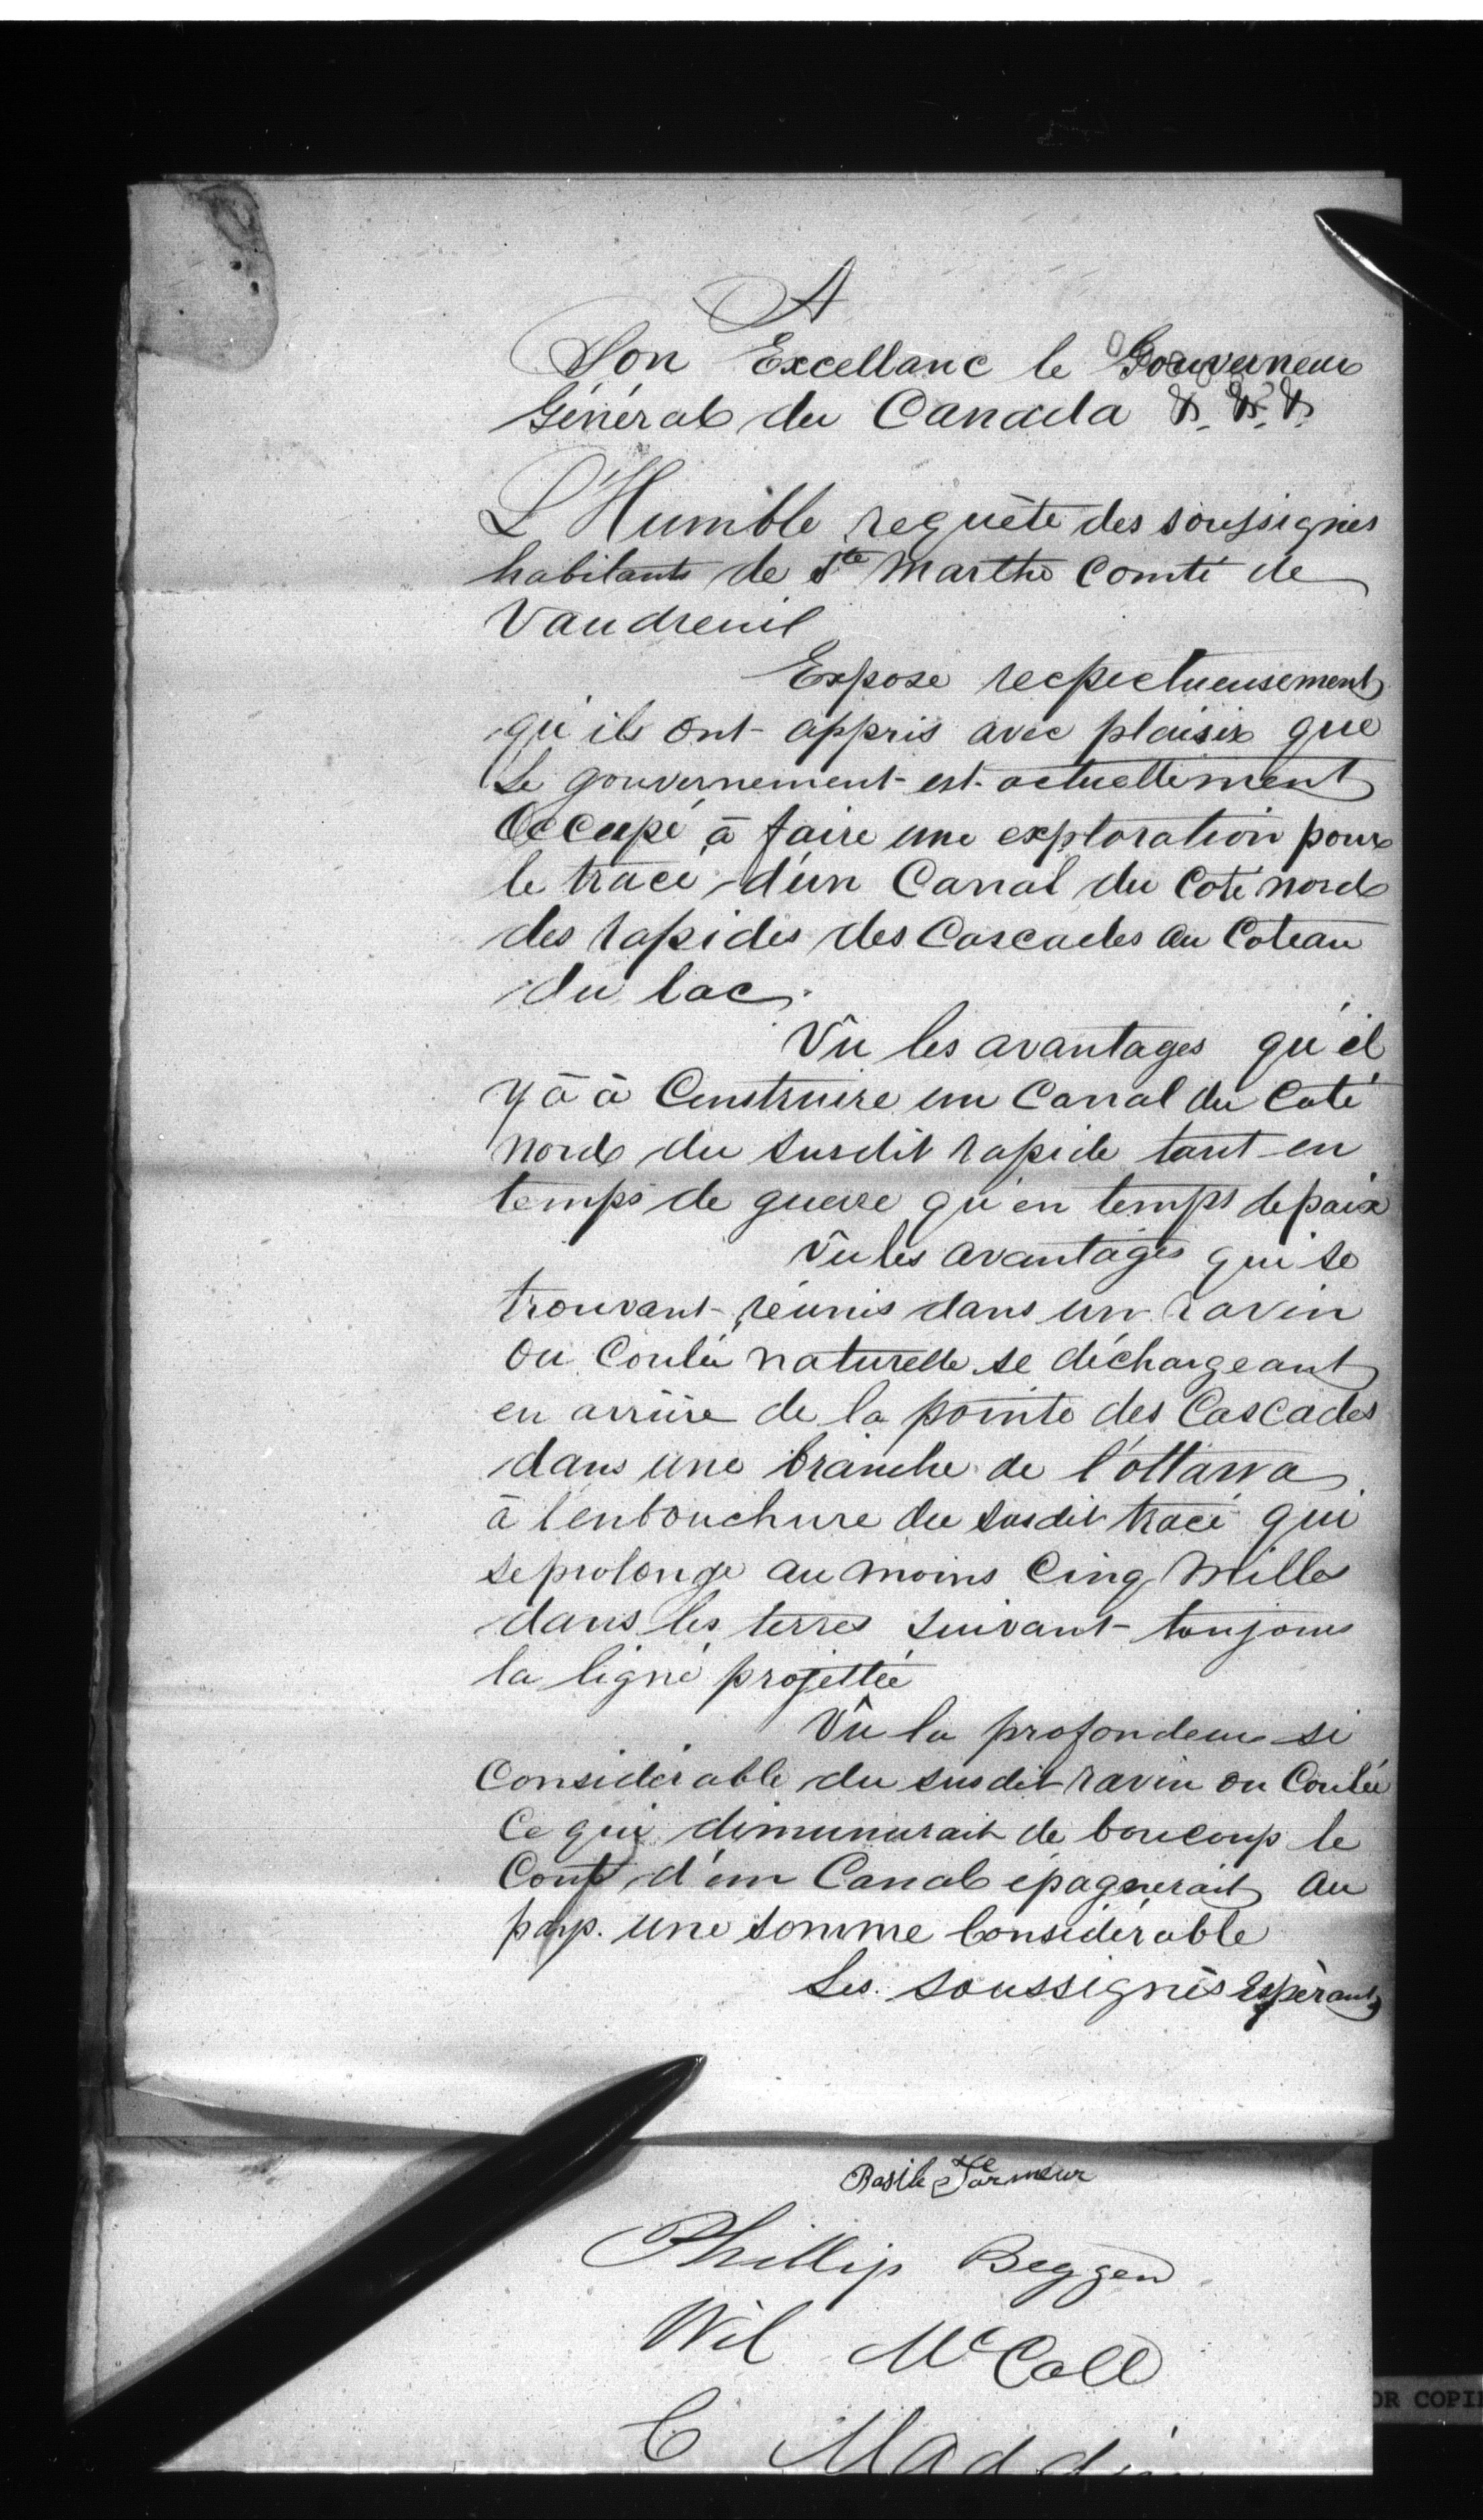 A
Son Excellanc le Gouverneur
Général du Canada &. &. &.
L'Humble requète des soussignés
habitants de Ste Marthe Comté de
Vaudreuil
Expose recpectueusement
qu'ils ont appris avec plaisir que
Le gouvernement est actuellement
Occupé à faire une exploration pour
le tracé d'un Canal du Coté nord
des rapides des Cascades au Coteau
du lac.
Vû les avantages qu'il
y à à Construire un Canal du Coté
Nord du susdit rapide tant en
temps de guerre qu'en temps de paix
Vû les avantages qui se
trouvant réunis dans un ravin
Ou Coulée naturelle se déchargeant
en arrière de la pointe des Cascades
dans une branche de l'ottawa
à l'enbouchure du susdit tracé qui
se prolonge au moins Cinq Milles
dans les terres suivant toujours
la ligne projettée
Vû la profondeur si
Considérable du susdit ravin ou Coulée
Ce qui dimunurait de boucoup le
Cout d'un Canal épagnerait au
pays. une somme Considérable
Les soussignés Espèrant
Basile
Phillip Beggen
Wil McCall
C Maddin
OR COPI